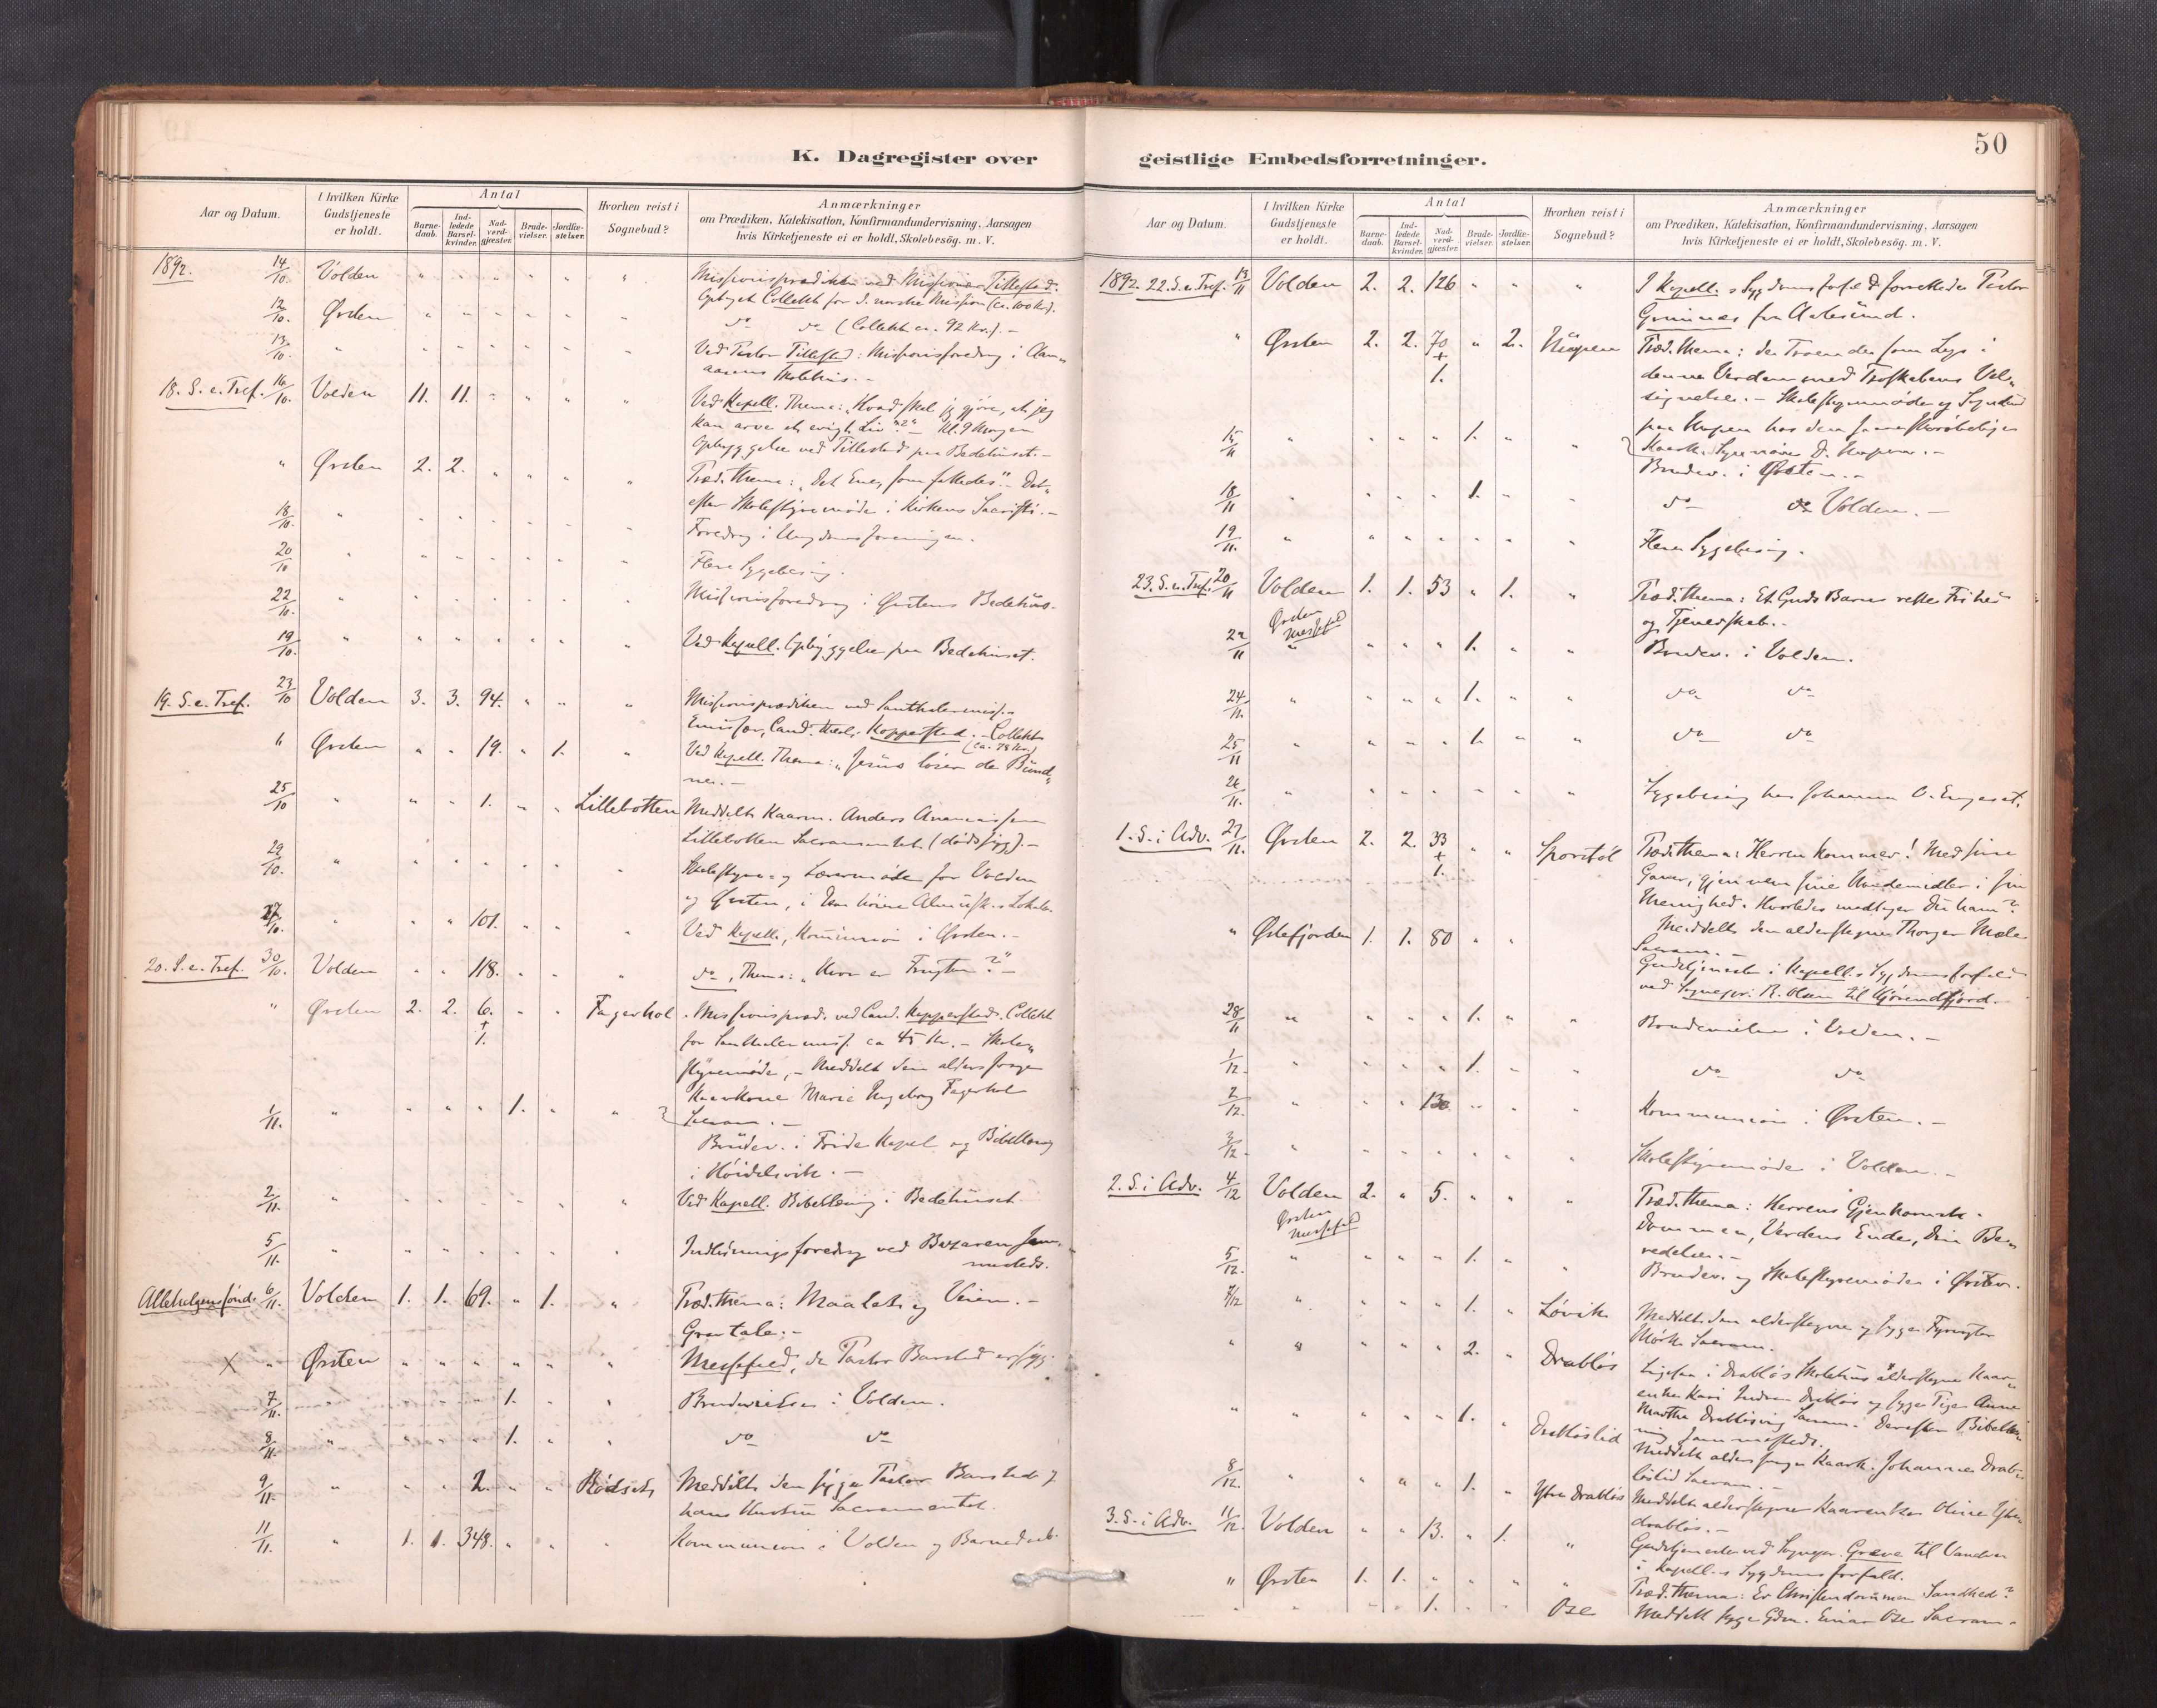 50
K. Dagregister over
Aar og Datum.
I hvilken Kirke Gudstjeneste er holdt.
Antal
Barne-daab.
Ind-ledede Barsel-kvinder.
Nad-verd-gjæster.
Brude-vielser.
Jordfæ-stelser.
Hvorhen reist i Sognebud?
Anmærkninger
om Prædiken, Katekisation, Konfirmandundervisning, Aarsagen
hvis Kirketjeneste ei er holdt, Skolebesøg. m. V.
1892. 14/10. Volden " " " " " " Missionsprædiken ved Missionær Tillestad.
Collekt for d. norske Mission (ca. 100 Kr.).
12/10. Ørsten " " " " " " do do (Collekt ca. 92 Kr.). -
13/10. " " " " " " " Ved Pastor Tillestad: Missionsforedrag i
Skolehus. -
18. S. e. Tref. 16/10. Volden 11. 11. " " " " Ved Kapell. Thema: "Hvad skal jeg gjøre, at jeg
kan arve et evigt Liv"? - Kl. 9 Morgen
Opbyggelse ved Tillestad paa Bedehuset. -
" Ørsten 2. 2. " " " " Præd. thema: "Det Ene, som fattedes". - Der-
efter Skolestyremøde i Kirkens Sacristi. -
18/10. " " " " " " " Foredrag i Ungdomsforeningen.
20/10 " " " " " " " Flere Sygebesøg.
22/10. " " " " " " " Missionsforedrag i Ørstens Bedehus.
19/10. " " " " " " " Ved Kapell. Opbyggelse paa Bedehuset.
19. S. e. Tref. 23/10 Volden 3. 3. 94. " " " Missionsprædiken ved Santhalermiss.
Cand. theol. Kopperstad. - Collekt
(ca. 78 Kr.)
" Ørsten " " 19. " 1. " Ved Kapell. Thema: "Jesus løser de Bund-
ne. -
25/10 " " " 1. " " Lillebotten Meddelt Kaarm. Anders
Lillebotten Sacramentet. (dødssyg). -
29/10. " " " " " " " Skolestyre- og Lærermøde for Volden
og Ørsten, i Lokale.
27/10. " " " 101. " " " Ved Kapell., Kommunion i Ørsten. -
20. S. e. Tref. 30/10. Volden " " 118. " " " do, Thema: "Hvor er Frugten"? -
" Ørsten 2. 2. 6. + 1. " " Fagerhol Missionspræd. ved Cand. Kopperstad. Collekt
for Santhalermiss. ca 45 Kr. - Skole-
styremøde, - Meddelt den aldersvage
Kaarkone Marie Ingeborg Fagerhol
Sacram. -
1/11. " " " " 1. " " Brudev. i Kapel og Bibellæsng
i Høidalsvik. -
2/11. " " " " " " " Ved Kapell. Bibellæsng i Bedehuset
5/11. " " " " " " " Indledningsforedrag ved Bazaren sam-
mesteds.
Allehelgenssønd. 6/11. Volden 1. 1. 69. " 1. " Præd. thema: Maalet og Veien. -
Gravtale. -
X " Ørsten " " " " " " Messefald, da Pastor Barsted er syg.
7/11. " " " " 1. " " Brudevielse i Volden.
8/11. " " " " 1. " " do do
9/11. " " " 2. " " Rødset Meddelt den syge Pastor Barsted og
hans Hustru Sacramentet.
11/11. " 1. 1. 348. " " " Kommunion i Volden og Barnedaab.
geistlige Embedsforretninger.
Aar og Datum.
I hvilken Kirke Gudstjeneste er holdt.
Antal
Barne-daab.
Ind-ledede Barsel-kvinder.
Nad-verd-gjæster.
Brude-vielser.
Jordfæ-stelser.
Hvorhen reist i Sognebud?
Anmærkninger
om Prædiken, Katekisation, Konfirmandundervisning, Aarsagen
hvis Kirketjeneste ei er holdt, Skolebesøg. m. V.
1892. 22. S. e. Tref. 13/11 Volden 2. 2. 126 " " " I Kapell.s Sygdomsforfald forrettede Pastor
fra Aalesund.
" Ørsten 2. 2. 70 + 1. " 2. Præd. thema: De Troende som Lys i
denne Verden med
signelse. - Skolestyremøde og Sognebud
paa hos den
Kaark.
15/11 " " " " 1. " " Brudev. i Ørsten. -
18/11 " " " " 1. " " do do Volden. -
19/11. " " " " " " " Flere Sygebesøg.
23. S. e. Tref. 20/11 Volden 1. 1. 53 " 1. " Præd. thema: Et Guds Barns rette Frihed
og Tjenerskab. -
Ørsten Messefald
22/11 " " " " 1. " " Brudev. i Volden.
24/11. " " " " 1. " " do do
25/11 " " " " 1. " " do do
26/11. " " " " " " " Sygebesøg hos Johanna O. Engeset.
1. S. i Adv. 27/11. Ørsten 2. 2. 33 + 1. " " Sporstøl Præd. thema: Herren kommer! Med sine
Gaver, gjennem sine Naademidler i sin
Menighed. Hvorledes modtager Du ham?
Meddelt den alderstegne
Sacram. -
" Østefjorden 1. 1. 80 " " Gudstjeneste i Kapell.s Sygdomsforfald
ved Sognepr. R. Olsen til Hjørundfjord.
28/11 " " " " 1. " " Brudevielse i Volden. -
1/12. " " " " 1. " " do do
2/12. " " " 130 " " " Kommunion i Ørsten. -
3/12. " " " " " " " Skolestyremøde i Volden. -
2. S. i Adv. 4/12 Volden 2. " 5. " " " Præd. thema: Herrens Gjenkomst.
Dommen, Verdens Ende, Din Be-
redelse. -
Ørsten Messefald
5/12. " " " " 1. " " Brudev. og Skolestyremøde i Ørsten.
7/12 " " " " 1. " Løvik Meddelt den alderstegne og syge
Mork Sacram.
" " " " " 2. " Drabløs Ligesaa i Drabløs Skolehus alderstegne Kaar-
enke Kari Drabløs og syge Pige Anne
Martha Sacram. Derefter Bibellæs-
ning sammesteds.
" " " " " 1. " Drabløslid Meddelt aldersvage Kaark. Johanne Drab-
løslid Sacram. -
8/12. " " " " 1. " Ytre Drabløs Meddelt alderstegne Kaarenke Oline Ytre-
drabløs. -
3. S. i Adv. 11/12. Volden " " 13. " 1. " Gudstjeneste ved Sognepr. Græve til
i Kapell.s Sygdomsforfald.
" Ørsten 1. 1. " " " " Præd. thema: Er Christendommen Sandhed?
" " " " 1. " " Ose Meddelt syge Gdm. Einar Ose Sacram.